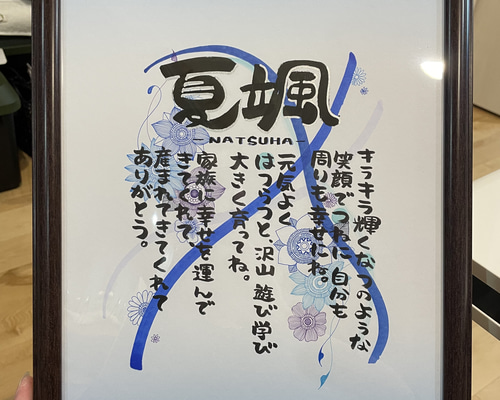 夏颯
-NATSUHA-
キラキラ輝くなつのような
笑顔でつねに自分も
周りも幸せにね。
元気よく
はつらつと、沢山遊び学び
大きく育ってね。
家族に幸せを運んで
きてくれて、
産まれてきてくれて
ありがとう。